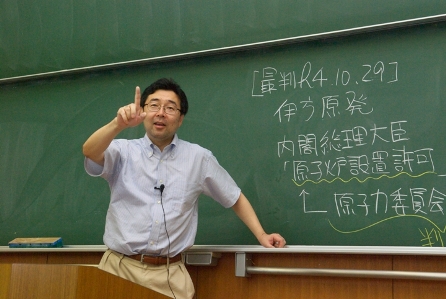 [最判R4.10.29]
伊方原発
内閣総理大臣
「原子炉設置許可
原子力委員会